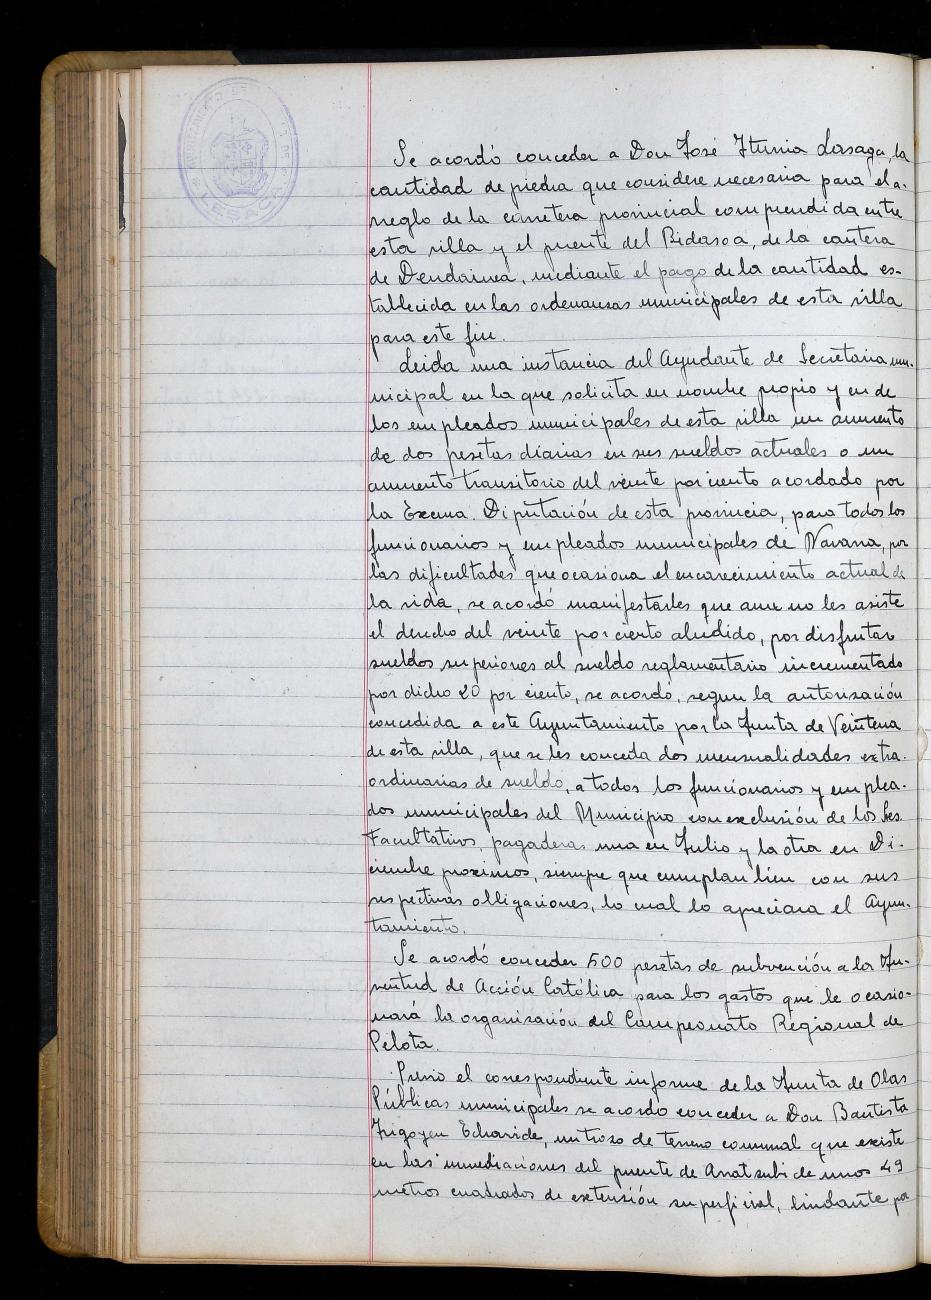 AYUNTAMIENTO DE
LESACA
Se acordó conceder a Don José Iturria Lasaga, la
cantidad de piedra que considere necesaria para el a-
rreglo de la carretera provincial comprendida entre
esta villa y el puente del Bidasoa, de la cantera
de Dendainea, mediante el pago de la cantidad es-
tablecida en las ordenanzas municipales de esta villa
para este fin.
Leida una instancia del Ayudante de Secretaria mu-
nicipal en la que solicita en nombre propio y en de
los empleados municipales de esta villa un aumento
de dos pesetas diarias en sus sueldos actuales o un
aumento transitorio del veinte por ciento acordado por
la Excma. Diputación de esta provincia, para todos los
funcionarios y empleados municipales de Navarra, por
las dificultades que ocasiona el encarecimiento actual de
la vida, se acordó manifestarles que aun no les asiste
el derecho del veinte por cierto aludido, por disfrutar
sueldos superiores al sueldo reglamentario incrementado
por dicho 20 por ciento, se acordó, segun la autorización
concedida a este Ayuntamiento por la Junta de Veintena
de esta villa, que se les conceda dos mensualidades extra-
ordinarias de sueldo, a todos los funcionarios y emplea-
dos municipales del Municipio con exclusión de los Sres.
Facultativos, pagaderas una en Julio y la otra en Di-
ciembre proximos, siempre que cumplan bien con sus
respectivas obligaciones, lo cual lo apreciara el Ayun-
tamiento.
Se acordó conceder 500 pesetas de subvención a la Ju-
ventud de Acción Católica para los gastos que le ocasio-
nará la organización del Campeonato Regional de
Pelota.
Previo el correspondiente informe de la Junta de Obras
Públicas municipales se acordo conceder a Don Bautista
Irigoyen Echavide, un trozo de terreno comunal que existe
en las inmediaciones del puente de Anatzubi de unos 49
metros cuadrados de extensión superficial, lindante por